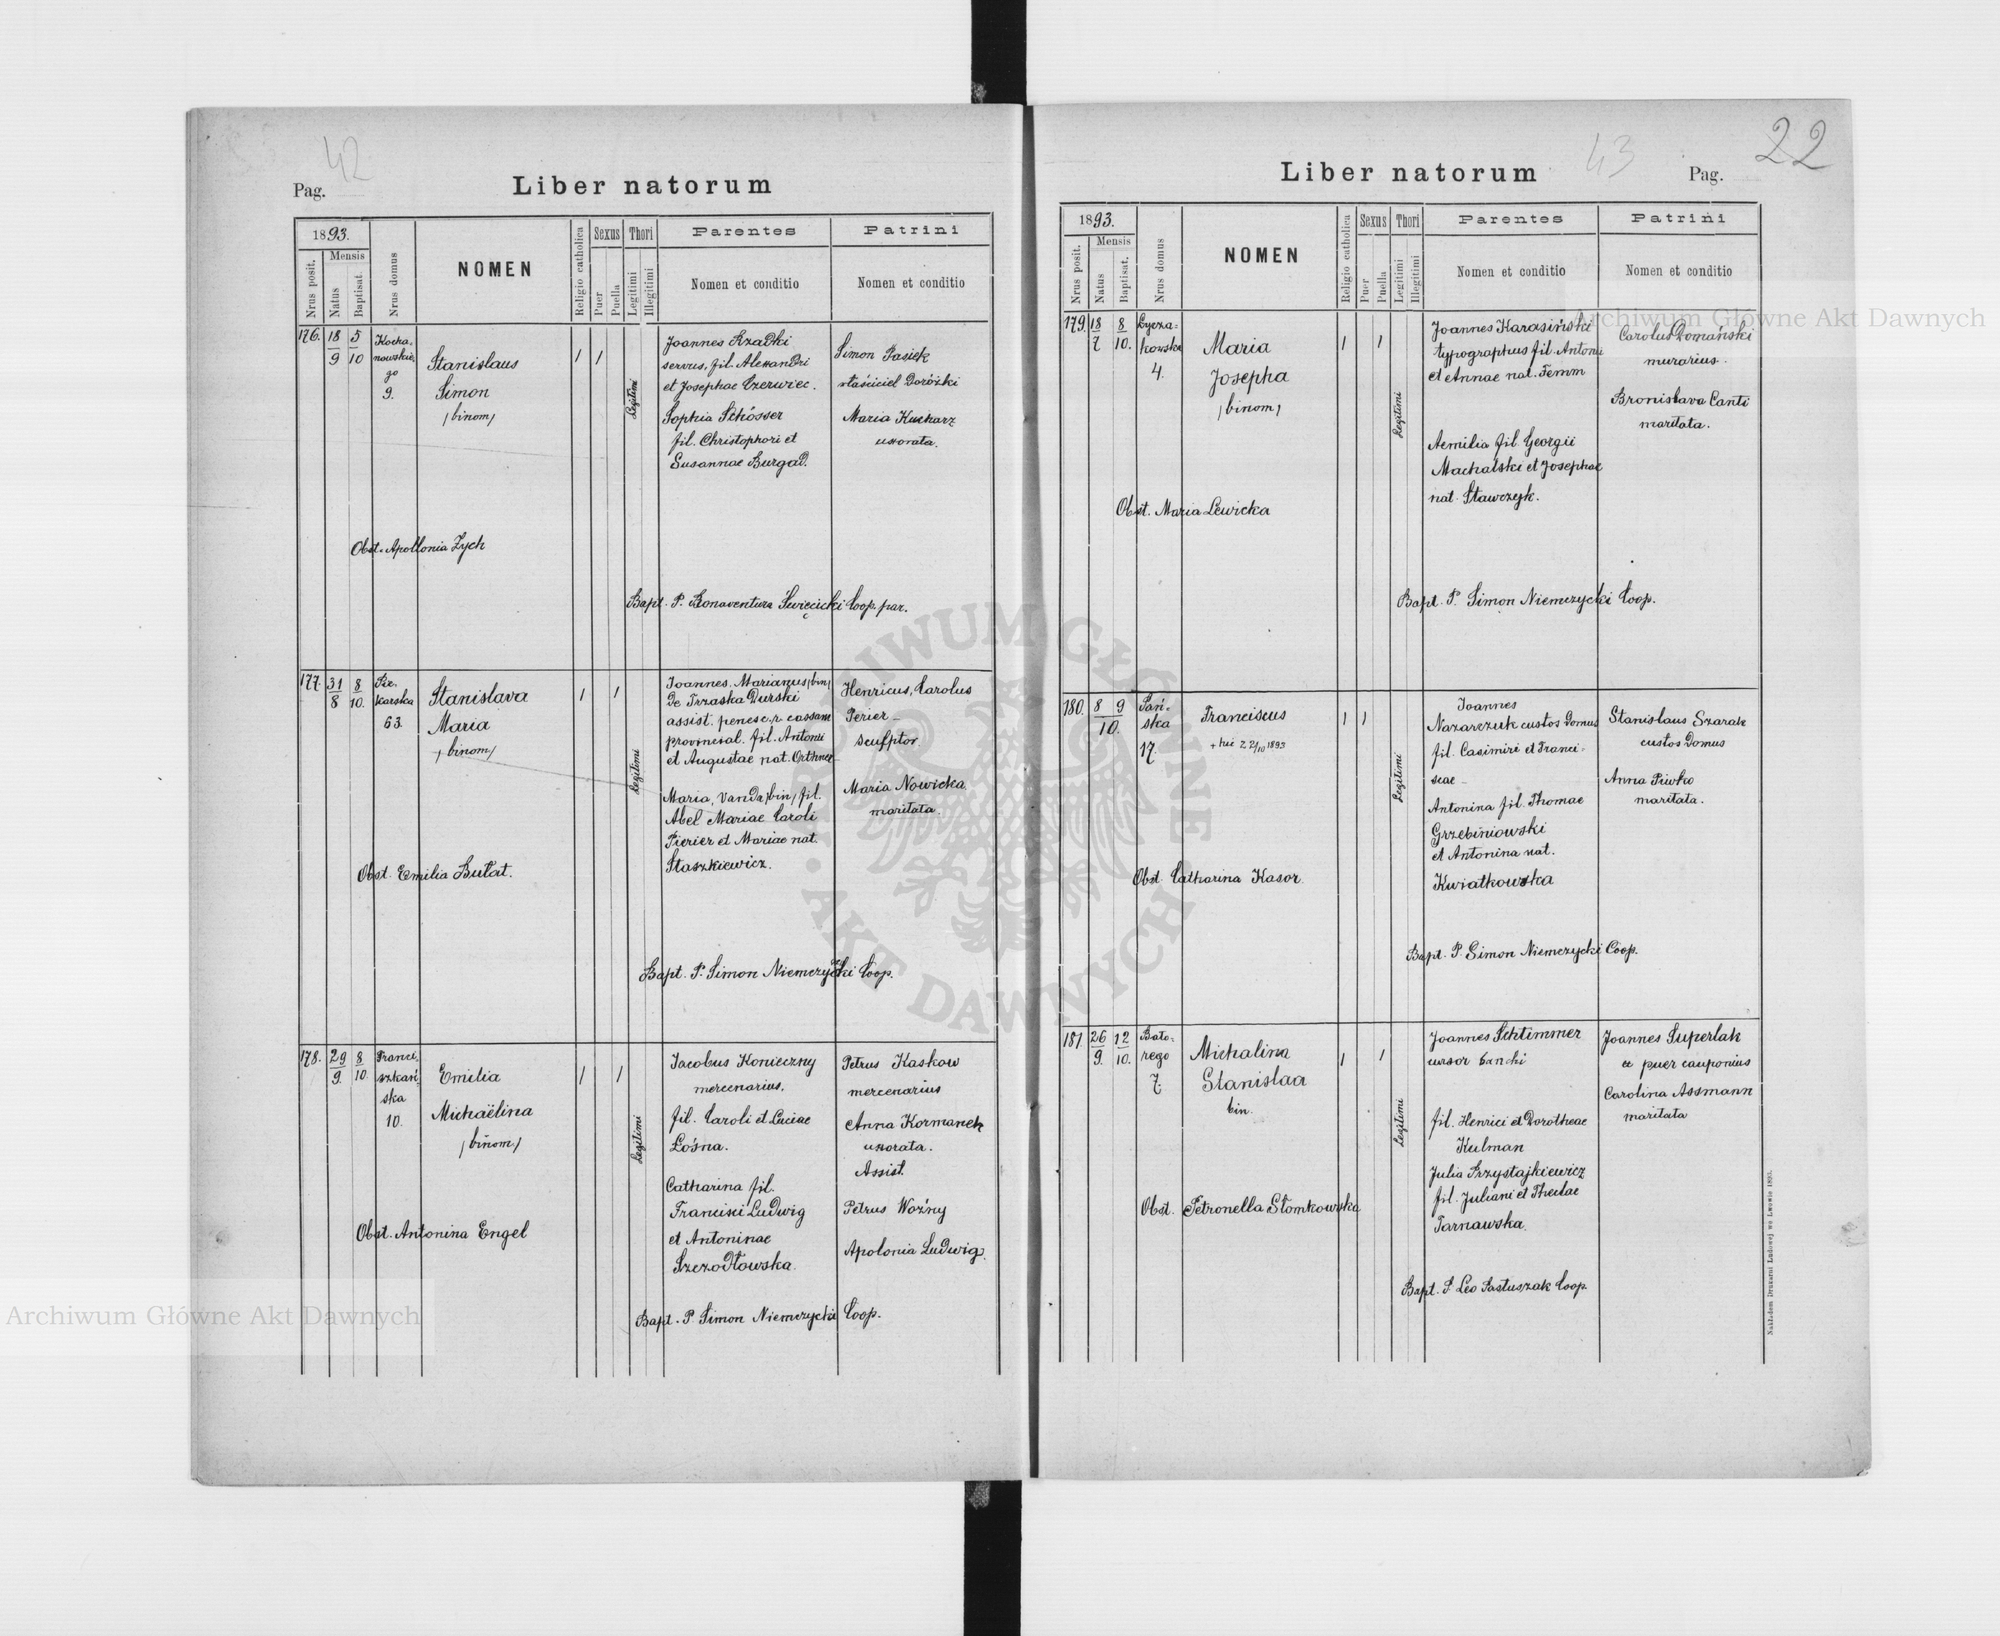 42
Pag.
Liber natorum
1893.
Nrus posit.
Mensis
Natus
Baptisat.
Nrus domus
NOMEN
Religio catholica
Sexus
Puer
Puella
Thori
Legitimi
Illegitimi
Parentes
Nomen et conditio
Patrini
Nomen et conditio
176.
18
9
5
10
Kocha
nowskie,
go
9.
Stanislaus
Simon
/binom/
1
1
Legitimi
Joannes Rzadki
servus, fil. Alexandri
et Josephae Czerwiec.
Sophia Schösser
fil. Christophori et
Susannae Burgad.
Simon Pasiek
właściciel Dorożki
Maria Kucharz
uxorata.
Obst. Apollonia Zych
Bapt. P. Bonaventura Święcicki Coop. par.
177.
31
8
8
10.
Pie-
karska
63.
Stanislava
Maria
/binom/
1
1
Legitimi
Joannes, Marianus /bin/
De Trzaska Durski
assist. penes c. r. cassam
provincial. fil. Antonii
et Augustae nat. Orthner
Maria, Vanda /bin/ fil.
Abel Mariae Caroli
Pierier et Mariae nat.
Staszkiewicz.
Henricus, Carolus
Perier
sculptor
Maria Nowicka
maritata.
Obst. Emilia Bułat.
Bapt. P. Simon Niemczycki Coop.
178.
29
9.
8
10.
Franci,
szkań,
ska
10.
Emilia
Michaëlina
/binom/
1
1
Legitimi
Jacobus Konieczny
mercenarius,
fil. Caroli et Luciae
Łośna.
Catharina fil.
Francisci Ludwig
et Antoninae
Szczodłowska.
Petrus Kaskow
mercenarius
Anna Kormanek
uxorata.
Assist.
Petrus Woźny
Apolonia Ludwig.
Obst. Antonina Engel
Bapt. P. Simon Niemczycki Coop.
43
22
Liber natorum
Pag.
1893.
Nrus posit.
Mensis
Natus
Baptisat.
Nrus domus
NOMEN
Religio catholica
Sexus
Puer
Puella
Thori
Legitimi
Illegitimi
Parentes
Nomen et conditio
Patrini
Nomen et conditio
179.
18
7
8
10.
Łycza-
kowska
4.
Maria
Josepha
/binom/
1
1
Legitimi
Joannes Karasiński
typographus fil. Antonii
et Annae nat. Temm
Aemilia fil. Georgii
Machalski et Josephae
nat. Stawczyk.
Carolus Domański
murarius.
Bronislava Canti
maritata.
Obst. Maria Lewicka
Bapt. P. Simon Niemczycki Coop.
180.
8
9
10.
Pań-
ska
17.
Franciscus
1
1
Legitimi
Joannes
Nazarczuk custos domus
fil. Casimiri et Franci-
scae
Antonina fil. Thomae
Grzebiniowski
et Antonina nat.
Kwiatkowska
Stanislaus Szarak
custos Domus
Anna Piwko
maritata.
Obst. Catharina Kasor
Bapt. P. Simon Niemczycki Coop.
181.
26
9.
12
10.
Bato-
rego
7.
Michalina
Stanislaa
bin.
1
1
Legitimi
Joannes Schtimmer
cursor banki
fil. Henrici et Dorotheae
Kulman
Julia Przystajkiewicz
fil. Juliani et Theclae
Tarnawska.
Joannes Superlak
puer cauponius
Carolina Assmann
maritata
Obst. Petronella Słomkowska
Bapt. P. Leo Pastuszak Coop.
Nakładem Drukarni Ludowej we Lwowie 1893.
Archiwum Główne Akt Dawnych
Archiwum Główne Akt Dawnych
ARCHIWUM GŁÓWNE
AKT DAWNYCH